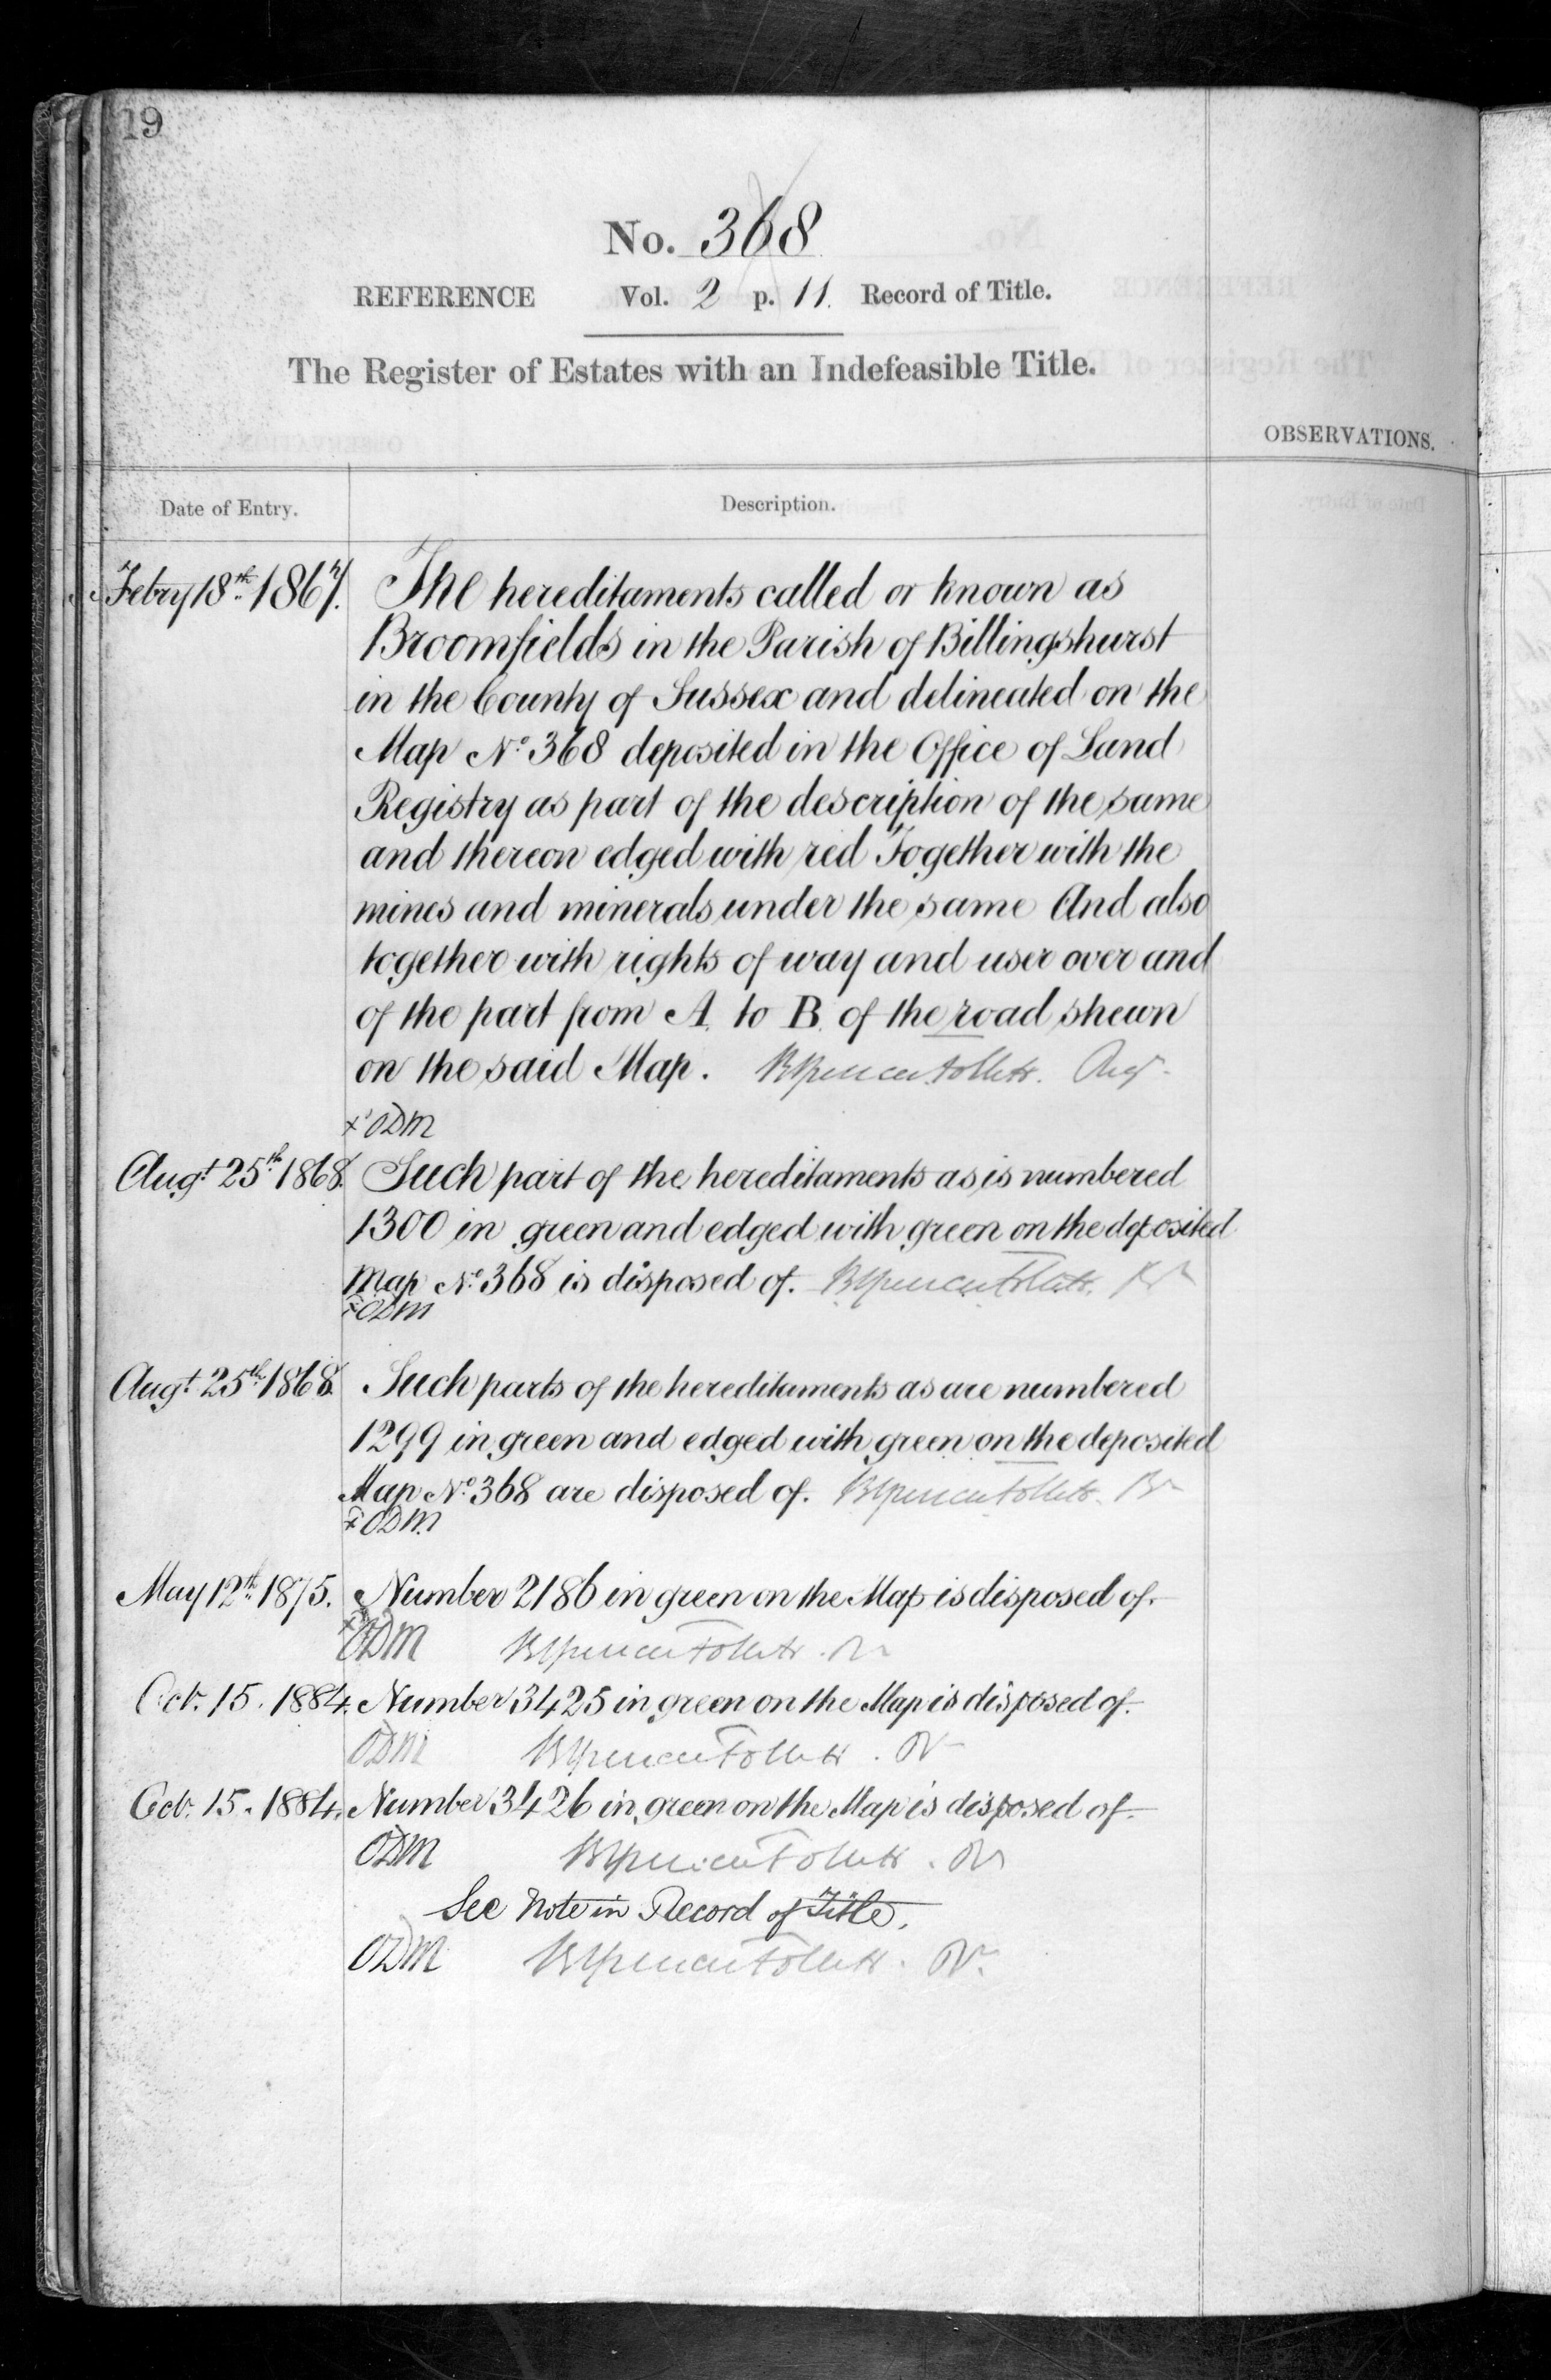 19
No. 368
REFERENCE Vol. 2 p. 11. Record of Title.
The Register of Estates with an Indefeasible Title.
OBSERVATIONS.
Date of Entry. Description.
Febry 18th 1867. The hereditaments called or known as
Broomfields in the Parish of Billingshurst
in the County of Sussex and delineated on the
Map No. 368 deposited in the Office of Land
Registry as part of the description of the same
and thereon edged with red Together with the
mines and minerals under the same And also
together with rights of way and user over and
of the part from A. to B. of the road shewn
on the said Map.
x ODM
Augt 25th 1868. Such part of the hereditaments as is numbered
1300 in green and edged with green on the deposited
Map No. 368 is disposed of.
x ODM
Augt 25th 1868. Such parts of the hereditaments as are numbered
1299 in green and edged with green on the deposited
Map No. 368 are disposed of.
x ODM
May 12th 1875. Number 2186 in green on the Map is disposed of.
x ODM
Oct. 15. 1884. Number 3425 in green on the Map is disposed of.
ODM
Oct. 15. 1884. Number 3426 in green on the Map is disposed of.
ODM
See Note in Record of Title.
ODM